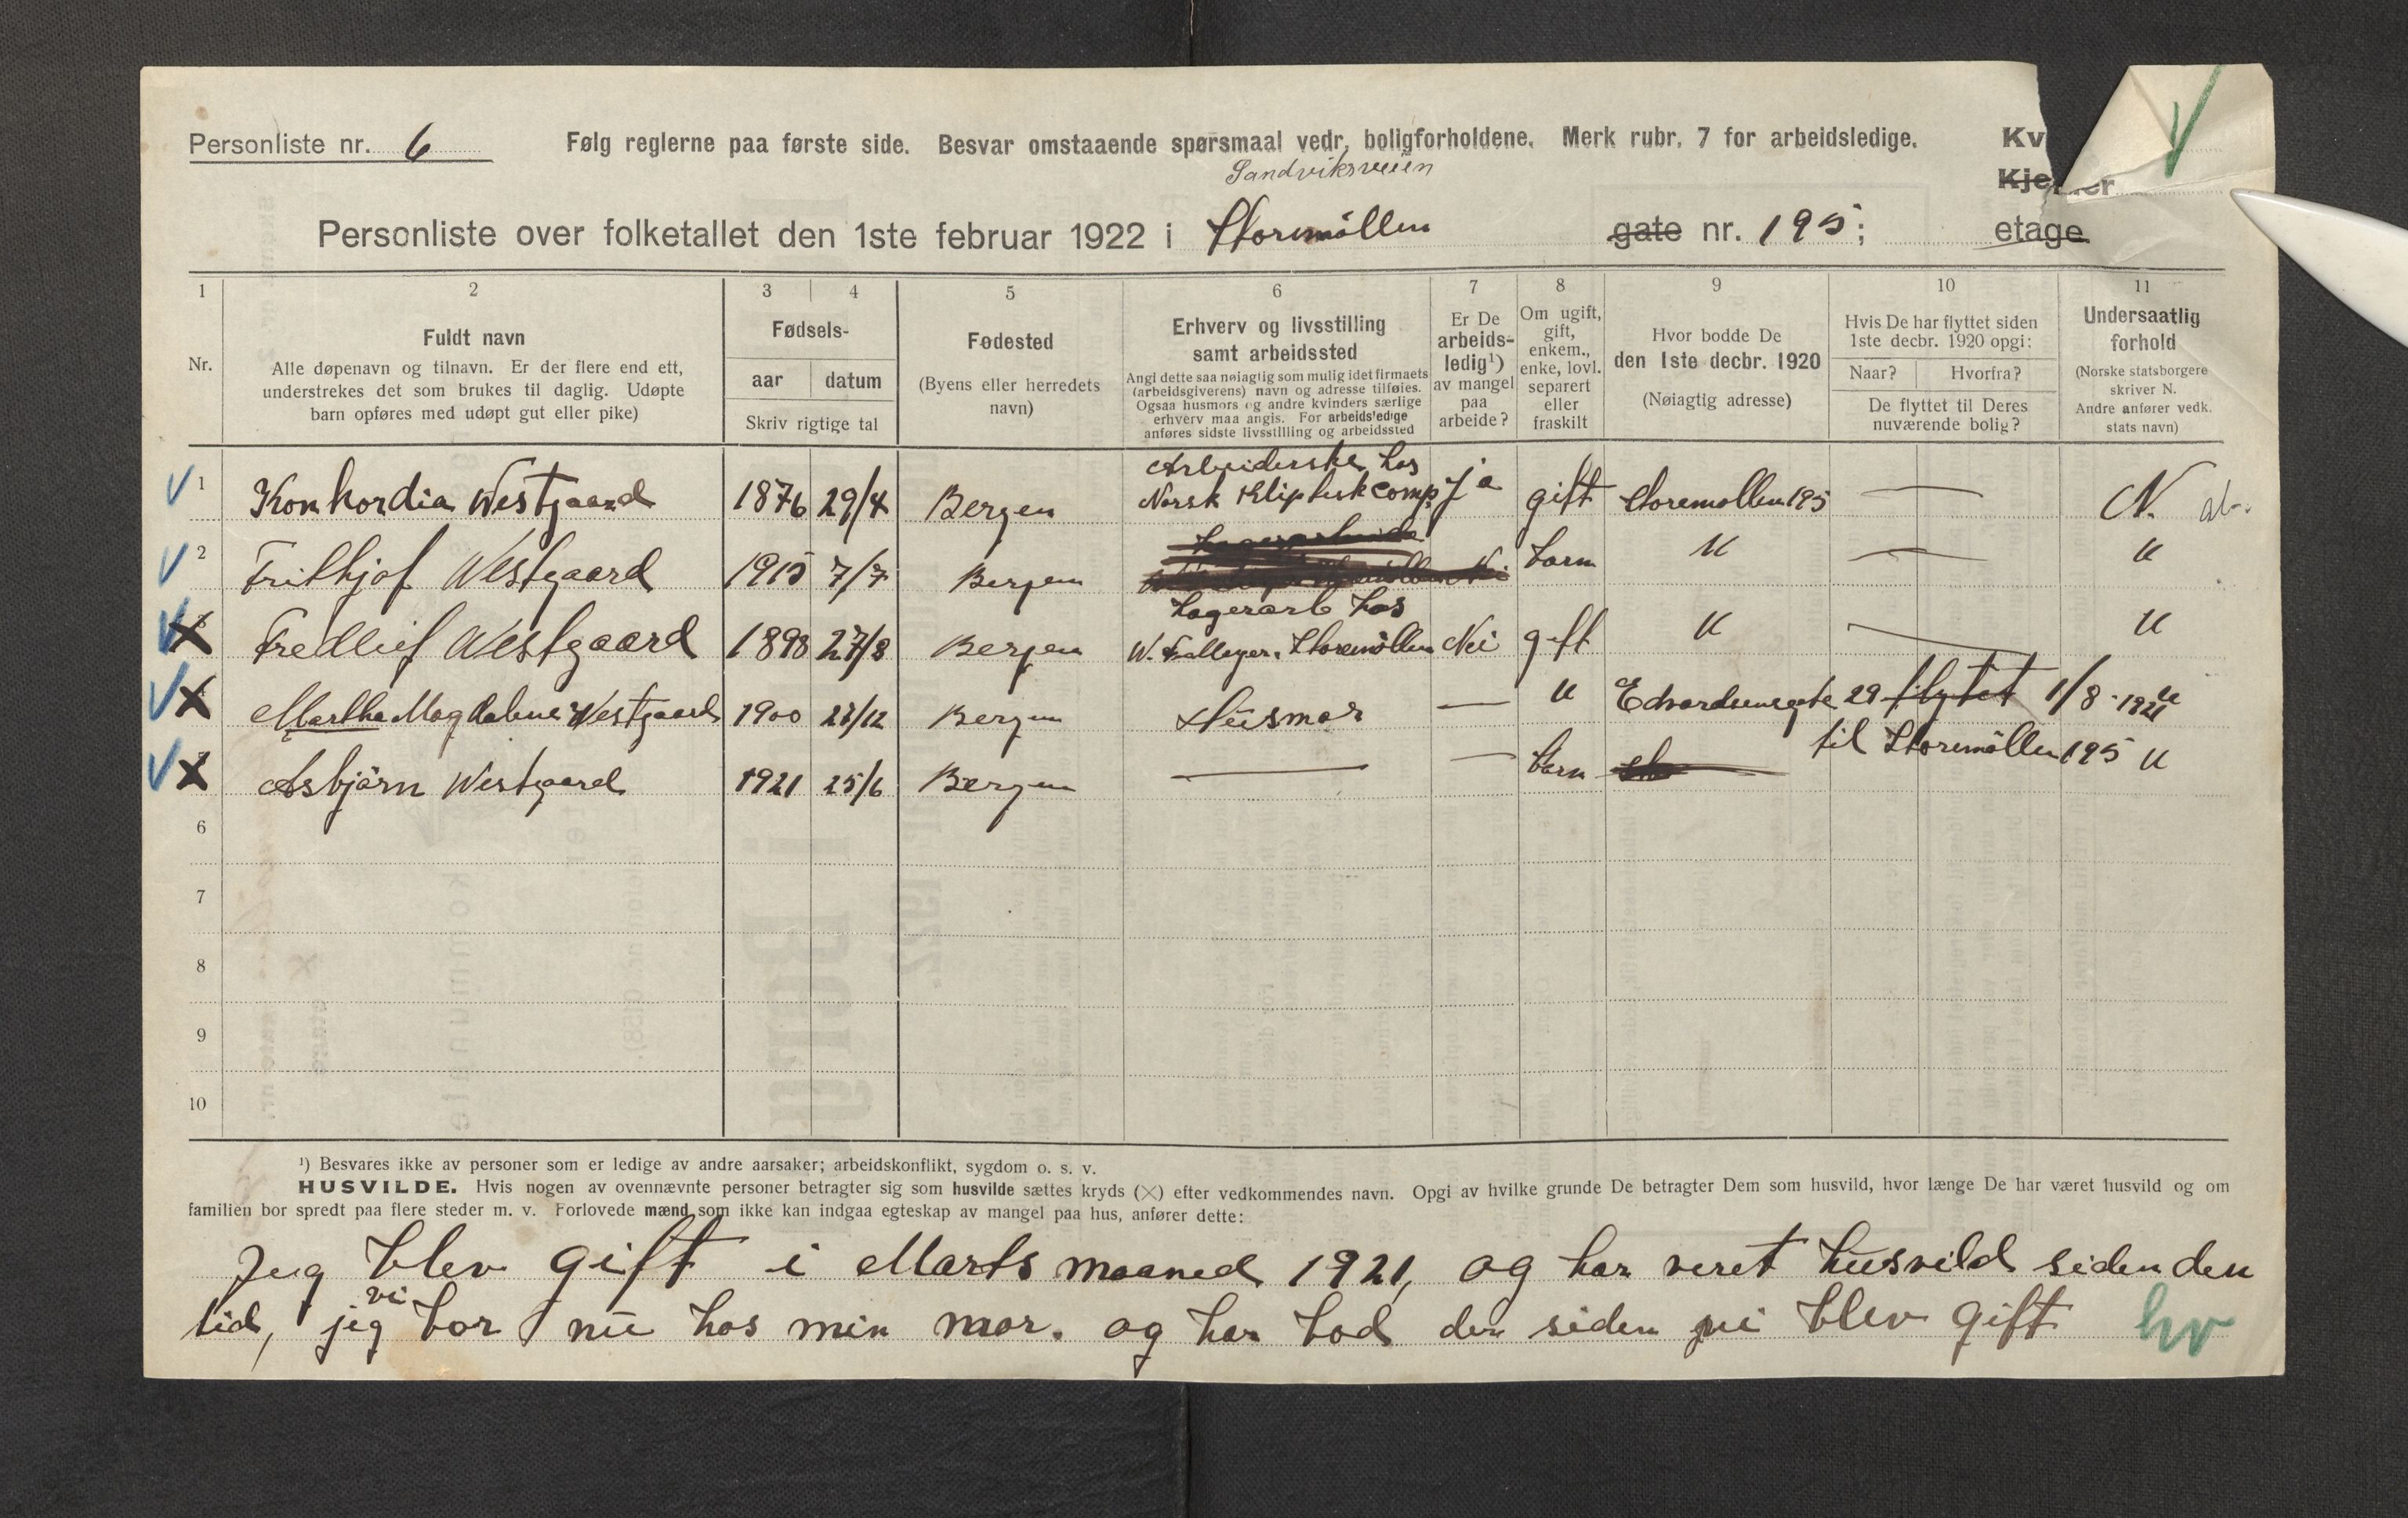 Personliste nr. 6 Følg reglerne paa første side. Besvar omstaaende spørsmaal vedr. boligforholdene. Merk rubr. 7 for arbeidsledige. Kv
Sandviksveien
Kje er
Personliste over folketallet den 1ste februar 1922 i Storemøllen gate nr. 195; etage
1 2 3 4 5 6 7 8 9 10 11
Nr.
Fuldt navn
Alle døpenavn og tilnavn. Er der flere end ett,
understrekes det som brukes til daglig. Udøpte
barn opføres med udøpt gut eller pike)
Fødsels-
aar datum
Skriv rigtige tal
Fødested
(Byens eller herredets
navn)
Erhverv og livsstilling
samt arbeidssted
Angi dette saa nøiagtig som mulig idet firmaets
(arbeidsgiverens) navn og adresse tilføies.
Ogsaa husmors og andre kvinders særlige
erhverv maa angis. For arbeidsledige
anføres sidste livsstilling og arbeidssted
Er De
arbeids-
ledig¹)
av mangel
paa
arbeide?
Om ugift,
gift,
enkem.,
enke, lovl.
separert
eller
fraskilt
Hvor bodde De
den 1ste decbr. 1920
(Nøiagtig adresse)
Hvis De har flyttet siden
1ste decbr. 1920 opgi:
Naar? Hvorfra?
De flyttet til Deres
nuværende bolig?
Undersaatlig
forhold
(Norske statsborgere
skriver N.
Andre anfører vedk.
stats navn)
Arbeiderske hos
1 Konkordia Westgaard 1876 29/4 Bergen Norsk Klipfisk Comp. Ja gift Storemøllen 195 — N.
2 Frithjof Westgaard 1915 7/7 Bergen barn " — "
Lagerarb hos
Fredlief Westgaard 1898 27/8 Bergen W. Falleyer. Storemøllen Nei gift " — "
Martha Magdalene Westgaard 1900 27/12 Bergen Husmor — " Edvardsensgate 29 flytet 1/8-1921 "
til Storemøllen 195
Asbjørn Westgaard 1921 25/6 Bergen — — barn "
6
7
8
9
10
¹) Besvares ikke av personer som er ledige av andre aarsaker; arbeidskonflikt, sygdom o. s. v.
HUSVILDE. Hvis nogen av ovennævnte personer betragter sig som husvilde sættes kryds (×) efter vedkommendes navn. Opgi av hvilke grunde De betragter Dem som husvild, hvor længe De har været husvild og om
familien bor spredt paa flere steder m. v. Forlovede mænd som ikke kan indgaa egteskap av mangel paa hus, anfører dette:
Jeg blev gift i Marts maaned 1921, og har veret husvild siden den
vi
tid, jeg bor nu hos min mor. og har bod der siden vi blev gift hv